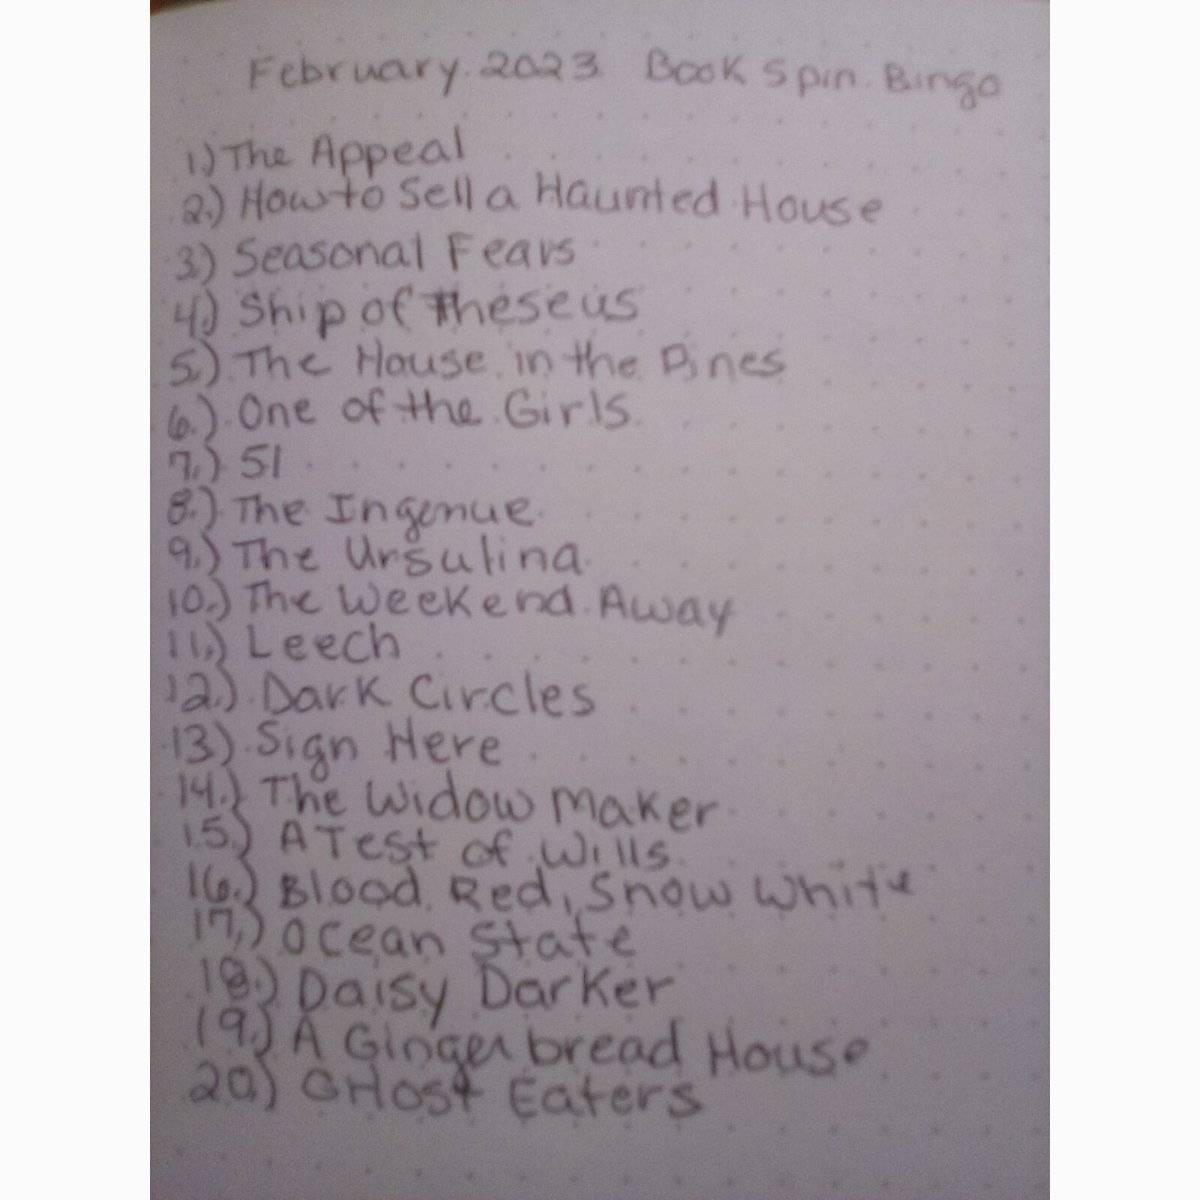 February 2023 Book Spin Bingo
1.) The Appeal
2.) How to Sell a Haunted House
3.) Seasonal Fears
4.) Ship of Theseus
5.) The House in the Pines
6.) One of the Girls
7.) 51
8.) The Ingenue
9.) The Ursulina
10.) The Weekend Away
11.) Leech
12.) Dark Circles
13.) Sign Here
14.) The Widow Maker
15.) A Test of Wills
16.) Blood Red, Snow White
17.) Ocean State
18.) Daisy Darker
19.) A Gingerbread House
20.) GHost Eaters